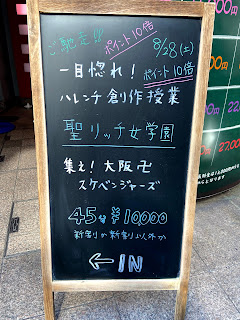 ご馳走!!
ポイント10倍
8/28(土)
一目惚れ!
ポイント10倍
ハレンチ創作授業
聖リッチ女学園
集え!大阪卍
スケベンジャーズ
45分¥10000
新割か新割以外か
←IN